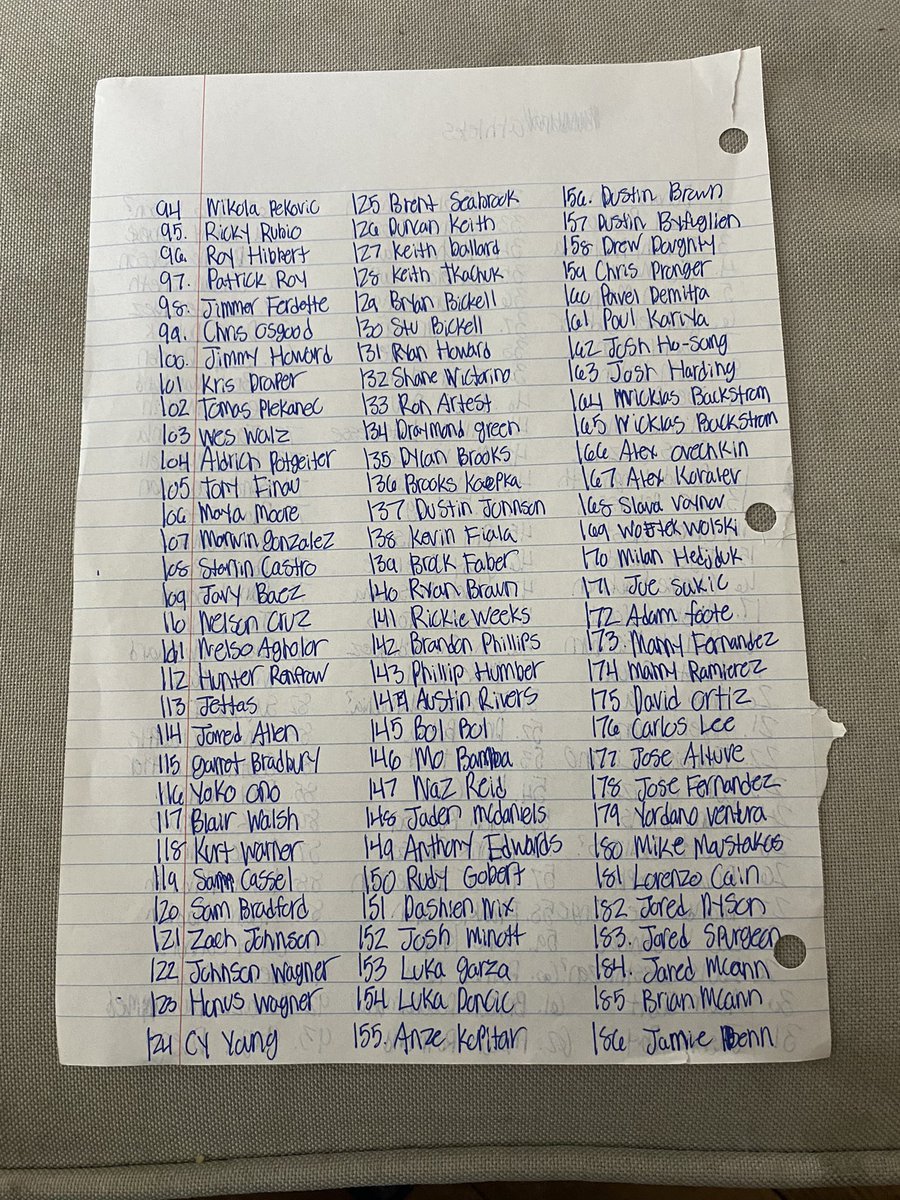 94 Nikola Pekovic
95. Ricky Rubio
96 Roy Hibbert
97. Patrick Roy
98. Jimmer Ferdette
99. Chris Osgood
100. Jimmy Howard
101 Kris Draper
102 Tomas Plekanec
103 Wes Walz
104 Aldrich Potgeiter
105 Tony Finau
106 Maya Moore
107 Marwin Gonzalez
108 Starlin Castro
109 Javy Baez
110 Nelson Cruz
111 Nelso Agholor
112 Hunter Renfrow
113 Jettas
114 Jarred Allen
115 Garret Bradbury
116 Yoko Ono
117 Blair Walsh
118 Kurt Warner
119 Sam Cassel
120 Sam Bradford
121 Zach Johnson
122 Johnson Wagner
123 Honus Wagner
124 Cy Young
125 Brent Seabrook
126 Duncan Keith
127 Keith Ballard
128 Keith Tkachuk
129 Bryan Bickell
130 Stu Bickell
131 Ryan Howard
132 Shane Victorino
133 Ron Artest
134 Draymond Green
135 Dylan Brooks
136 Brooks Koepka
137 Dustin Johnson
138 Kevin Fiala
139 Brock Faber
140 Ryan Braun
141 Rickie Weeks
142 Brandon Phillips
143 Phillip Humber
144 Austin Rivers
145 Bol Bol
146 Mo Bamba
147 Naz Reid
148 Jaden Mcdaniels
149 Anthony Edwards
150 Rudy Gobert
151 Dashien Nix
152 Josh Minott
153 Luka Garza
154 Luka Doncic
155. Anze Kopitar
156. Dustin Brown
157 Dustin Byfuglien
158 Drew Doughty
159 Chris Pronger
160 Pavel Demitta
161 Paul Kariya
162 Josh Ho-Sang
163 Josh Harding
164 Nicklas Backstrom
165 Nicklas Backstrom
166 Alex Ovechkin
167 Alex Kovalev
168 Slava Voynov
169 Wojtek Wolski
170 Milan Hedjduk
171 Joe Sakic
172 Adam Foote
173. Manny Fernandez
174 Manny Ramierez
175 David Ortiz
176 Carlos Lee
177 Jose Altuve
178 Jose Fernandez
179 Yordano Ventura
180 Mike Moustakas
181 Lorenzo Cain
182 Jared Dyson
183. Jared Spurgeon
184. Jared Mcann
185 Brian Mcann
186 Jamie Benn